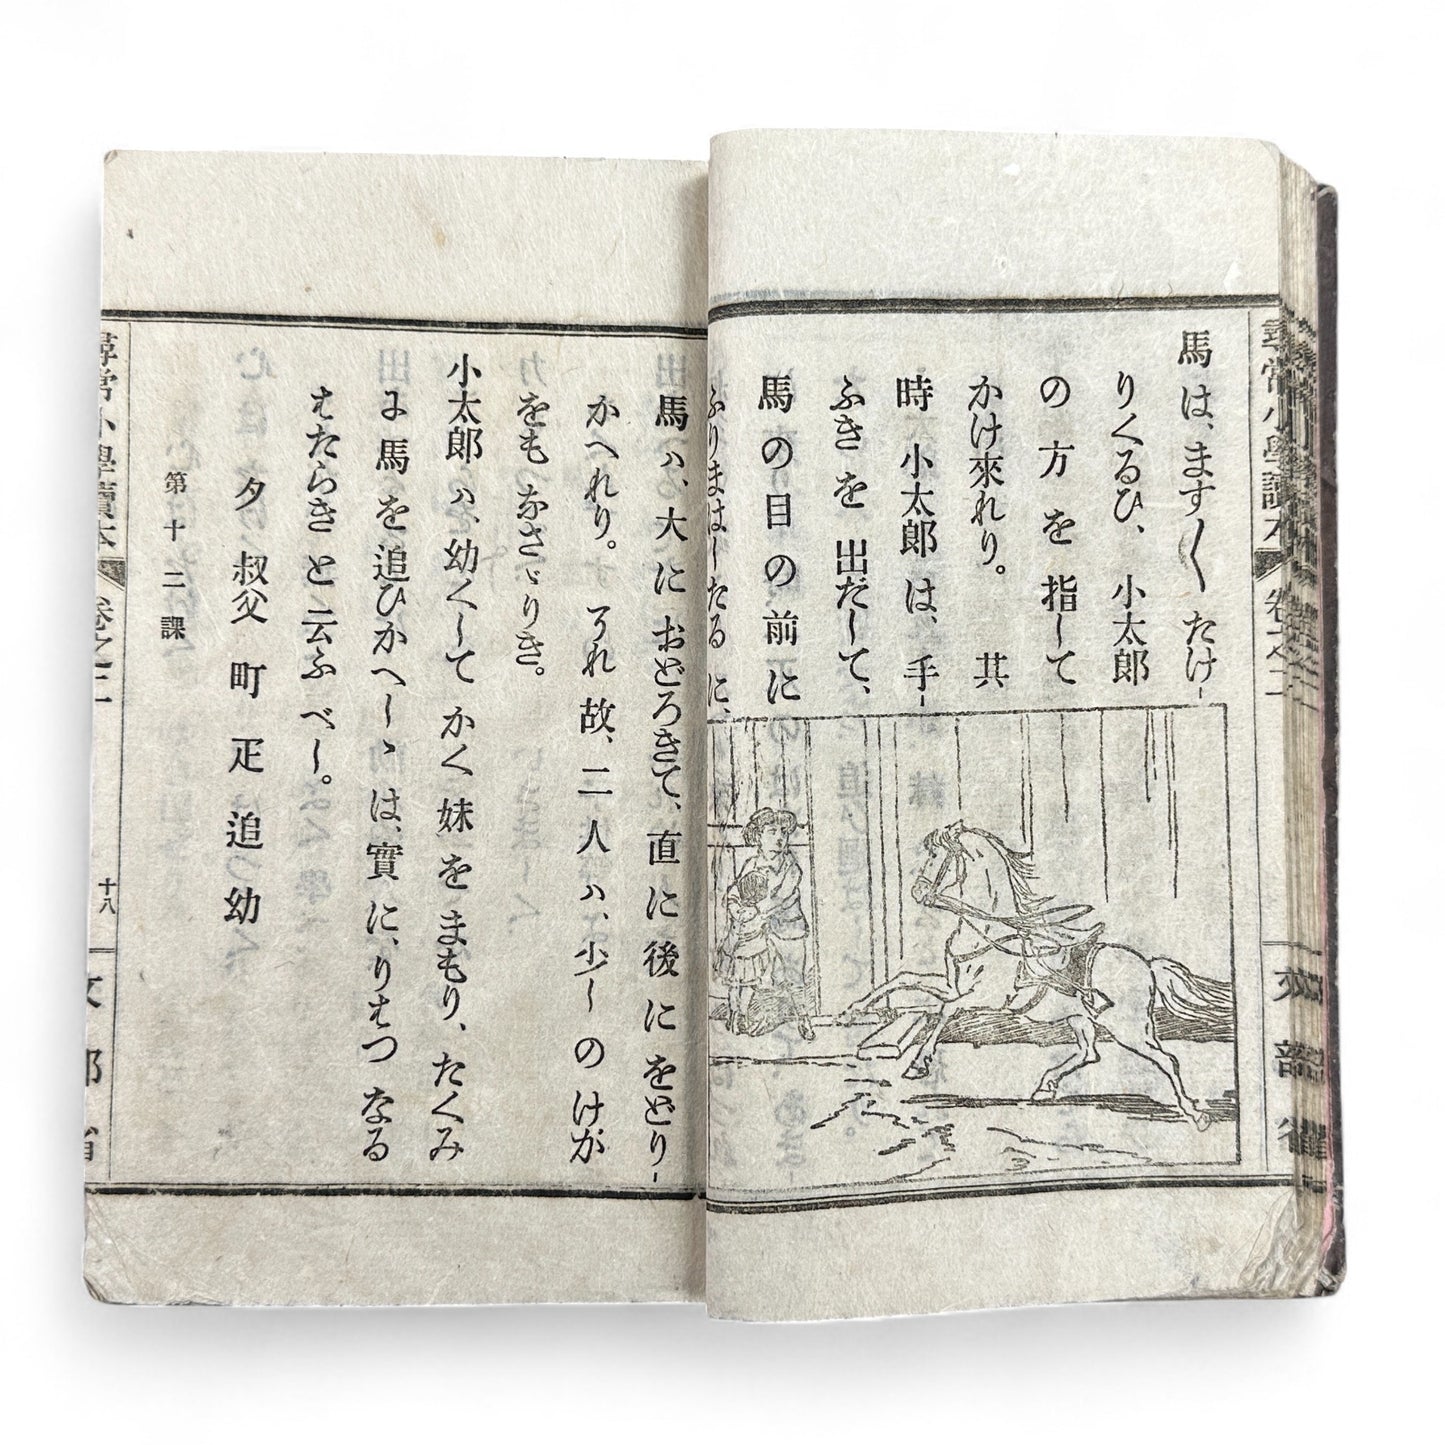 馬は、ます〱たけ-
りくるひ、小太郎
の方を指して
かけ來れり。其
時小太郎は、手-
ふきを出だして、
馬の目の前に
ふりまはしたるに、
尋常小學讀本
卷之二
文部省
馬ハ、大におどろきて、直に後にをどり-
かへれり。それ故、二人ハ、少しのけが
をもなさゞりき。
小太郎ハ、幼くしてかく妹をまもり、たくみ
に馬を追ひかへしゝは、實に、りはつなる
はたらきと云ふべし。
夕 叔父 町 疋 追 幼
第十二課
尋常小學讀本
卷之二
十八
文部省